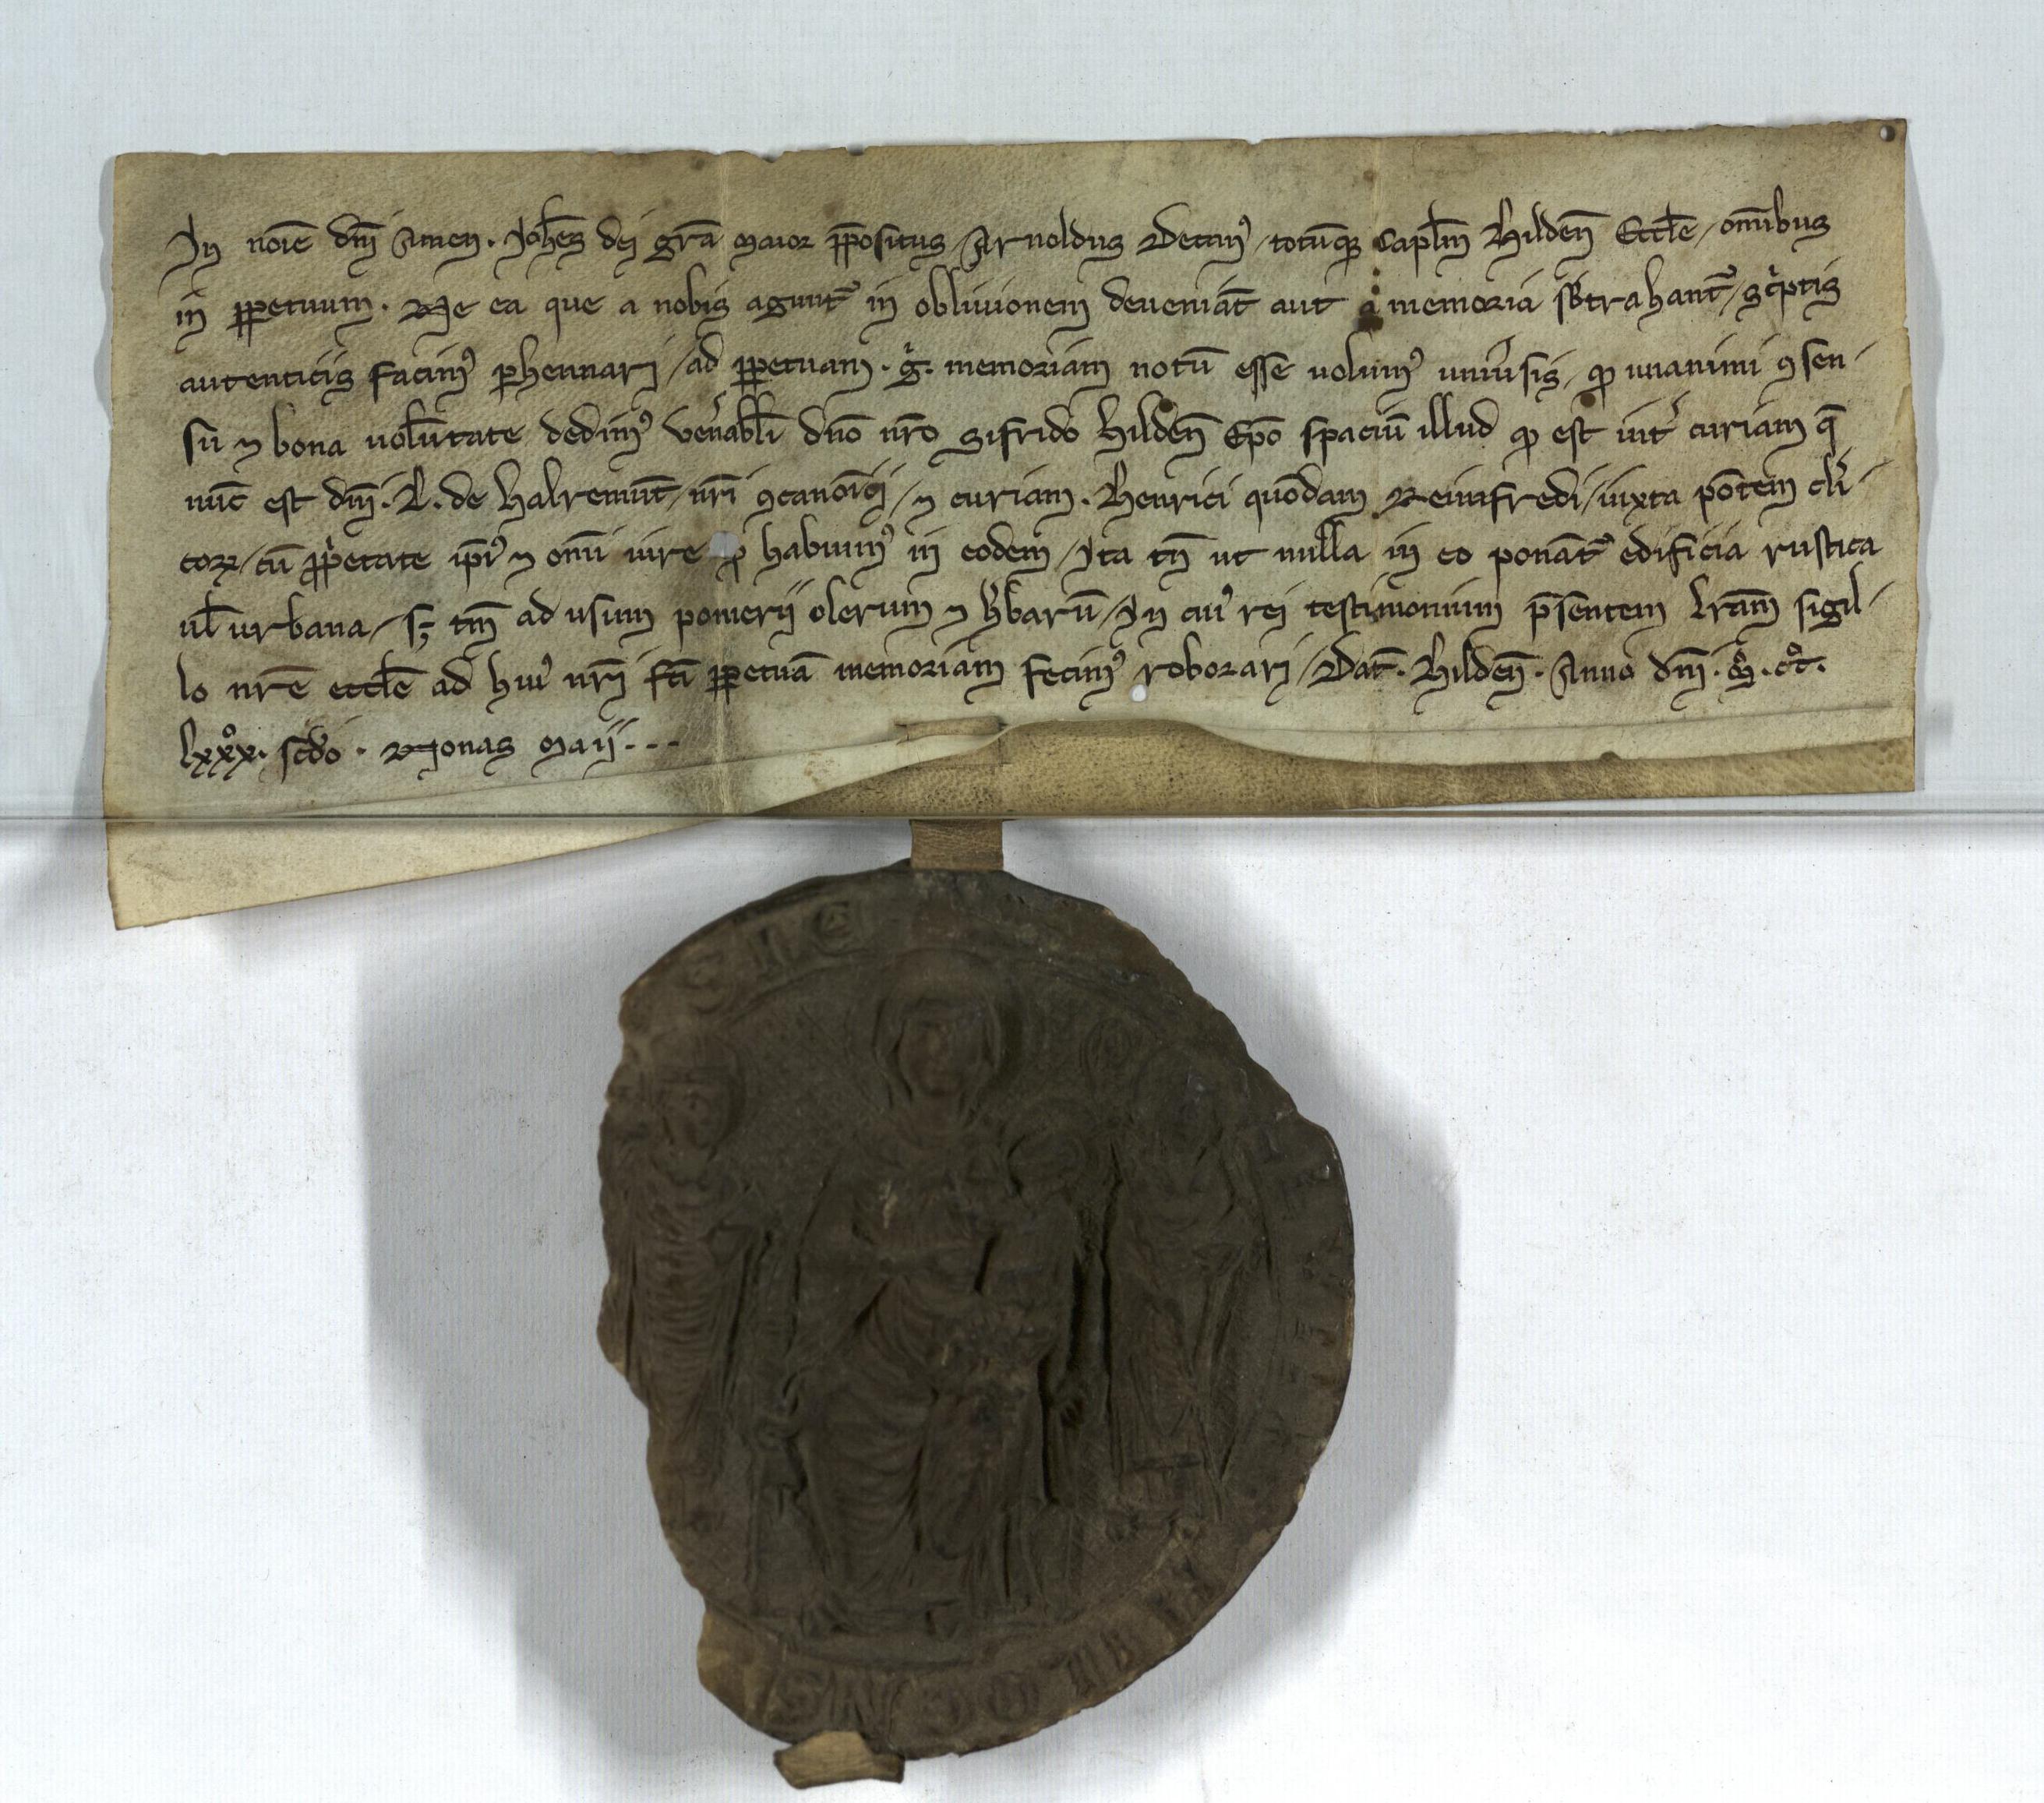 In noīe dn̄i Amen. Joh̄es dei gr̄a Maior p̄positus Arnoldus Decanꝰ, totūqꝫ Capl̄m Hilden̄ Eccl̄e, om̄ibus
in ꝑpetuum. Ne ea que a nobis agunt᷑ in obliuionem deueniāt aut a memoria sb̄trahant᷑, sc͛ptis
autenticis facimꝰ ꝑhennari, ad ꝑpetuam. g͛. memoriam notū esse uolumꝰ uniu͛sis, qđ unanimi ꝯsen-
su ⁊ bona uolūtate dedimꝰ uen͛abl̄i dn̄o nr̄o Sifrido Hilden̄ Ep̄o spaciū illud qđ est int͛ curiam q̄
nūc est dn̄i. L. de Halremūt, nr̄i ꝯcanonici, ⁊ curiam. Henrici quondam Reinfredi, iuxta pōtem cl͛i-
corꝝ, cū ꝓp͛etate ip̄iꝰ ⁊ om̄i iure qđ habuimꝰ in eodem, Ita tn̄ ut nulla in eo ponāt᷑ edificia rustica
ul̄ urbana, sꝫ tm̄ ad usum pomerii olerum ⁊ h͛barū, In cuiꝰ rei testimonium p̄sentem lr̄am sigil-
lo nr̄e eccl̄e ad huiꝰ nr̄i fc̄i ꝑpetuā memoriam fecimꝰ roborari, Dat̄. Hilden̄. Anno dn̄i. M̊. cc̊.
lxxx̊. scd̄o. Nonas Maii...
GIE